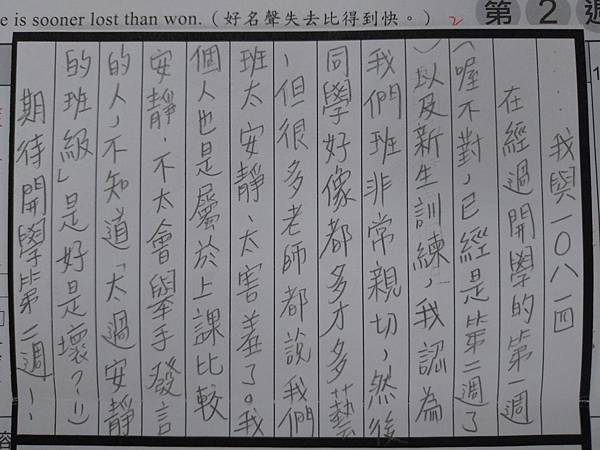 e is sooner lost than won.(好名聲失去比得到快。) 2
第2週
我與一〇八一四
在經過開學的第一週
(喔不對,已經是第二週了
)以及新生訓練,我認為
我們班非常親切,然後
同學好像都多才多藝
,但很多老師都說我們
班太安靜、太害羞了。我
個人也是屬於上課比較
安靜,不太會舉手發言
的人,不知道「太過安靜
的班級」是好是壞?=))
期待開學第二週!!